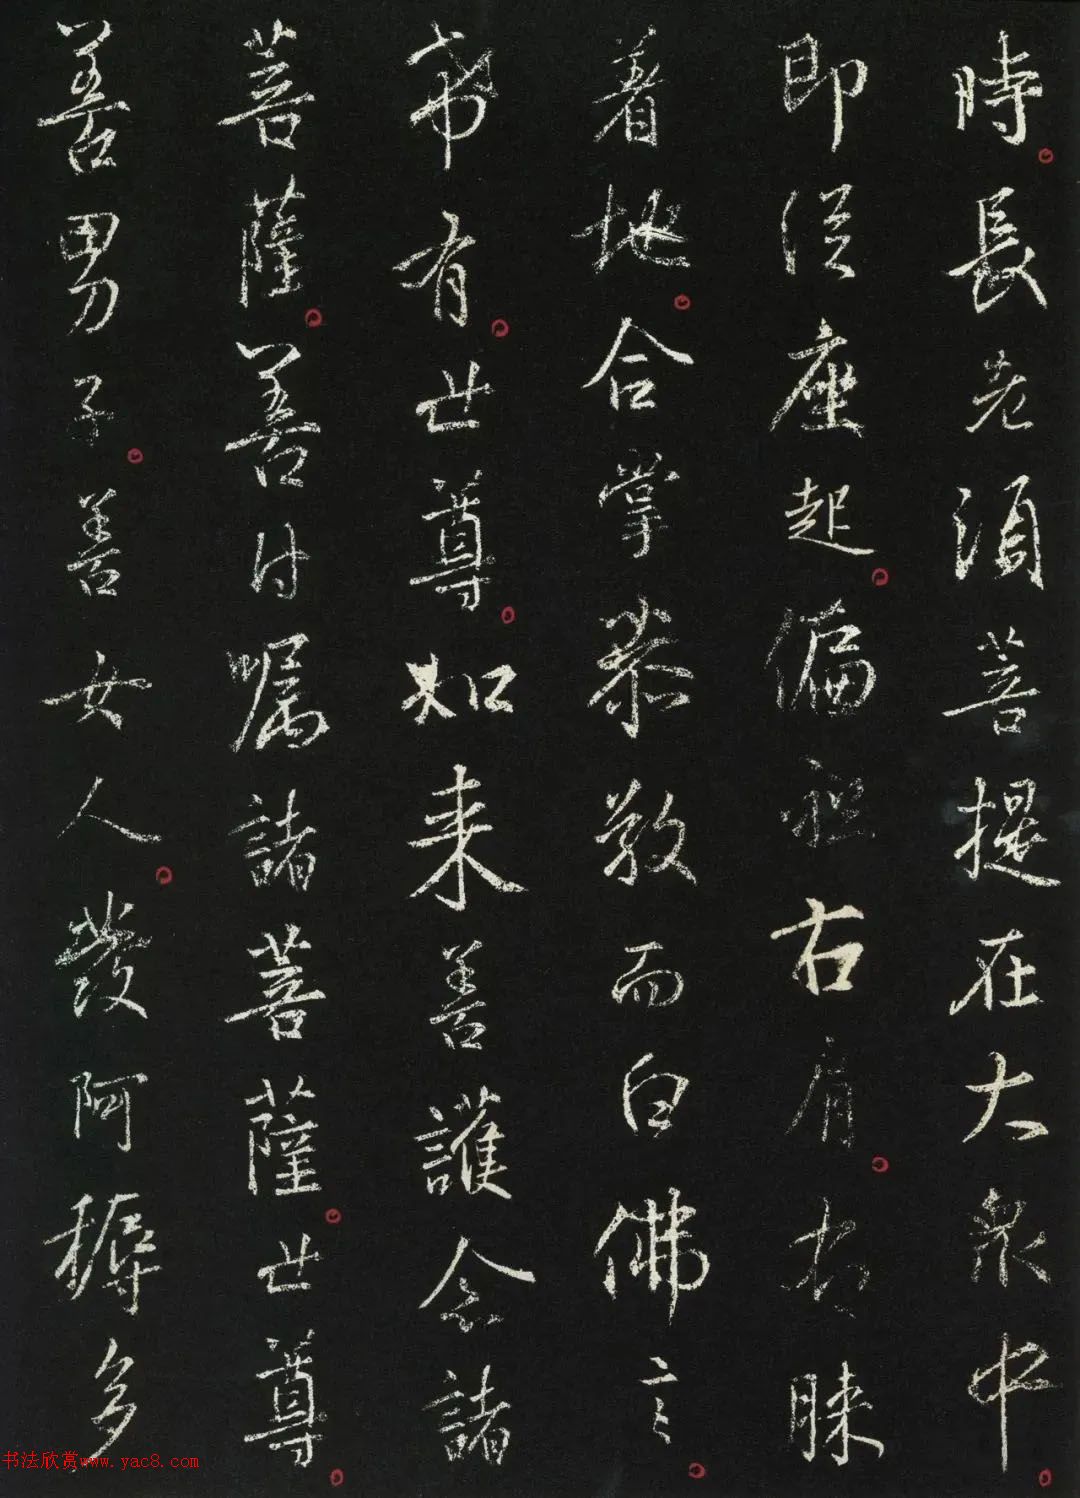 時長老須菩提在大衆中
即從座起偏袒右肩右膝
着地合掌恭敬而白佛言
希有世尊如来善護念諸
菩薩善付嘱諸菩薩世尊
善男子善女人發阿耨多
书法欣赏www.yac8.com